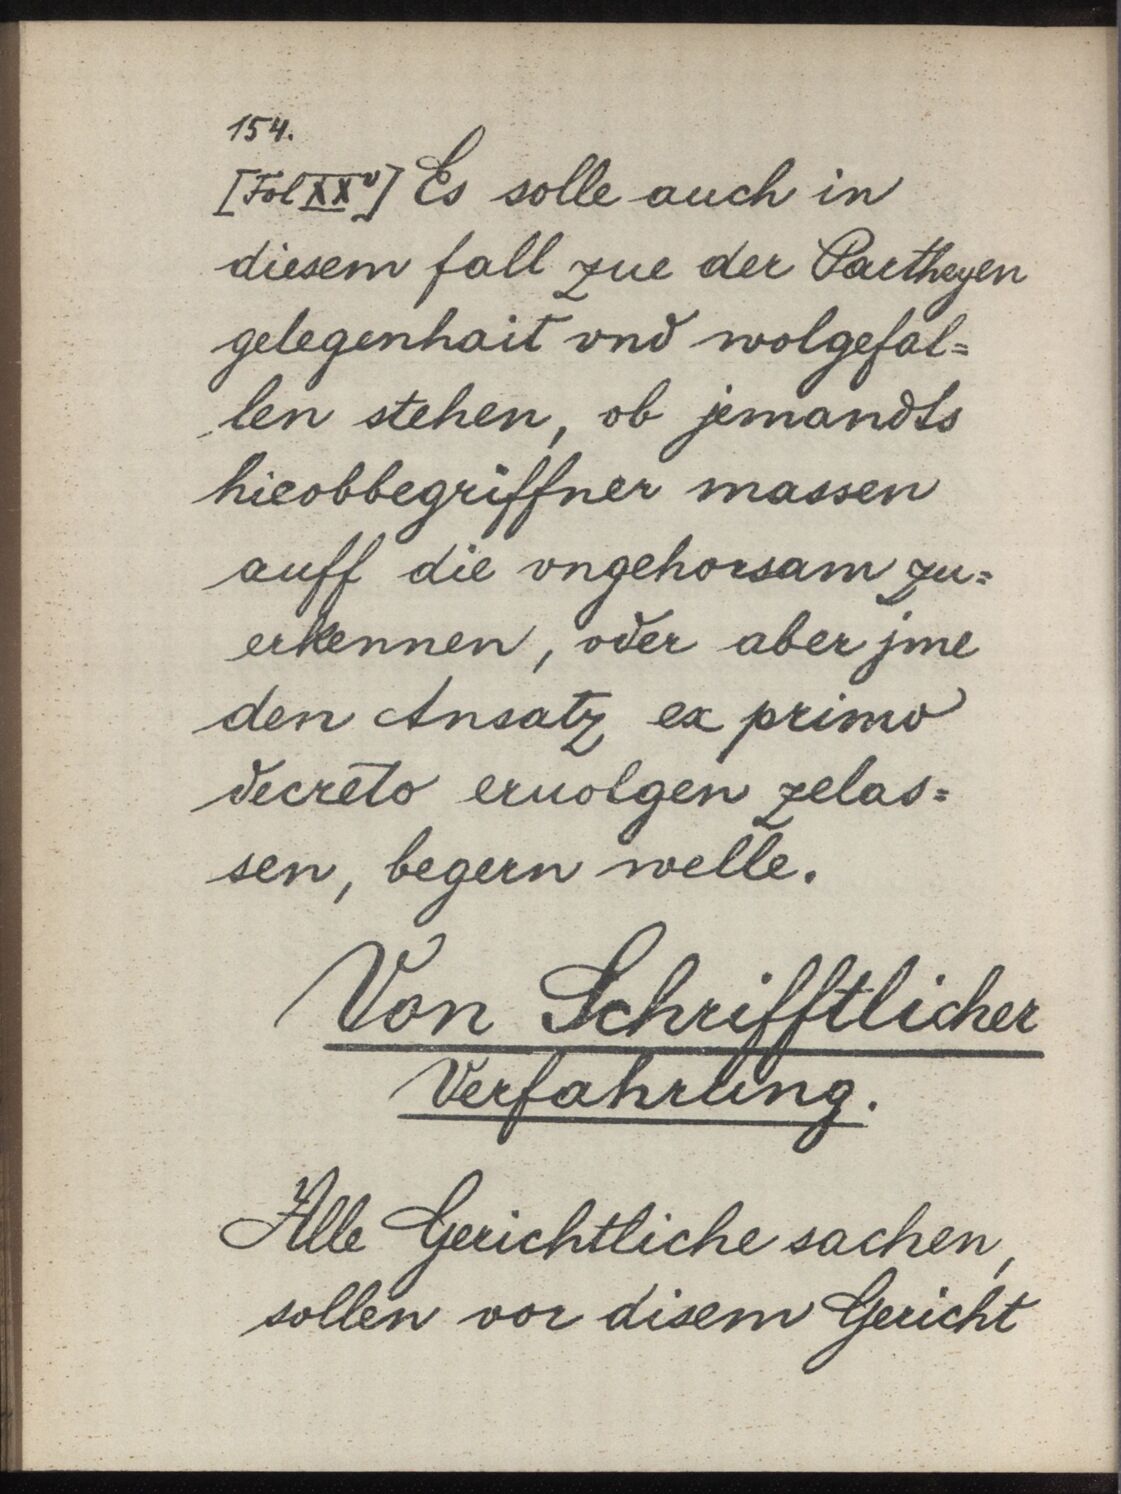 154.
[Fol XXv] Es solle auch in
diesem fall zue der Partheyen
gelegenhait vnd wolgefal=
len stehen, ob jemandts
hieobbegriffner massen
auff die vngehorsam zu=
erkennen, oder aber jme
den Ansatz ex primo
decreto eruolgen zelas=
sen, begern welle.
Von Schrifftlicher
Verfahrung.
Alle Gerichtliche sachen,
sollen vor disem Gericht